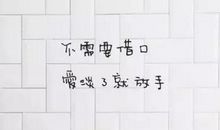 不需要借口
愛淡了就放手